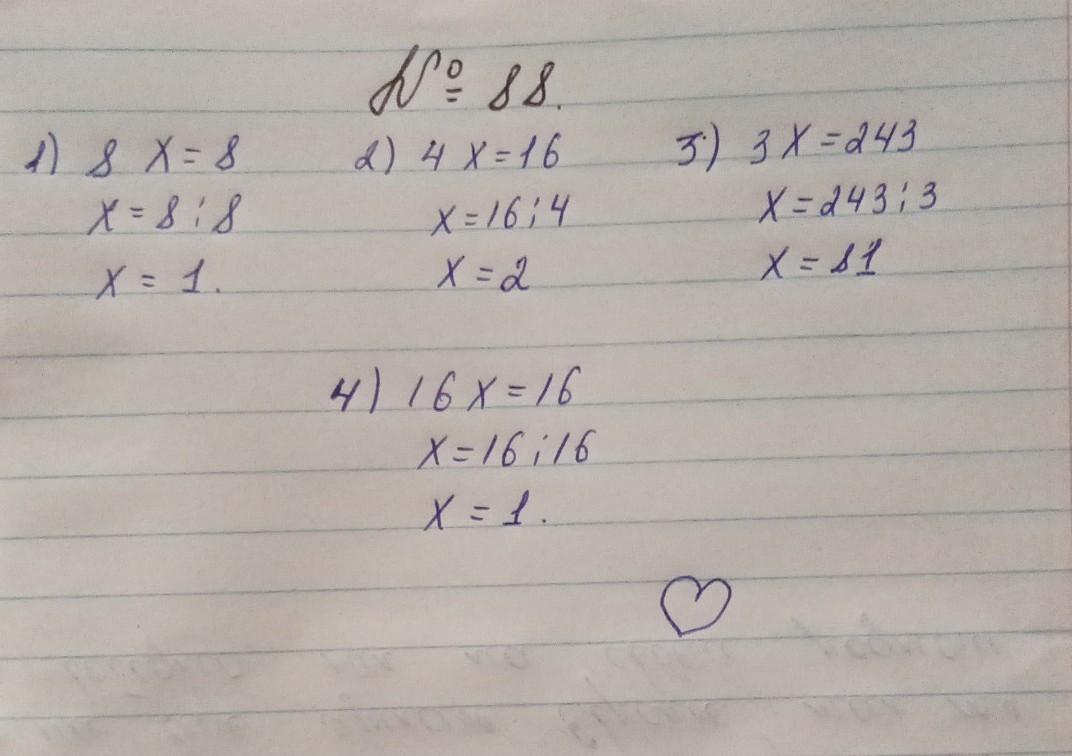 № 88.
1) 8 x = 8
x = 8 : 8
x = 1.
2) 4 x = 16
x = 16 : 4
x = 2
3) 3 x = 243
x = 243 : 3
x = 81
4) 16 x = 16
x = 16 : 16
x = 1.